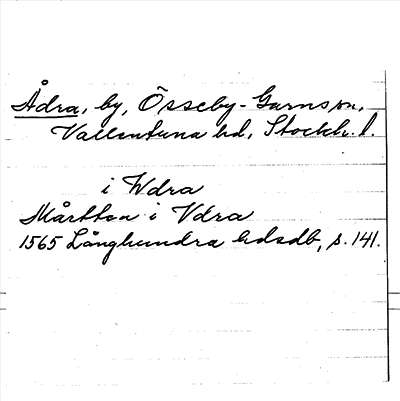 Ådra, by, Össeby-Garns sn,
Vallentuna hd, Stockh. l.
i Wdra
Mårtten i Vdra
1565 Långhundra hdsdb, s. 141.